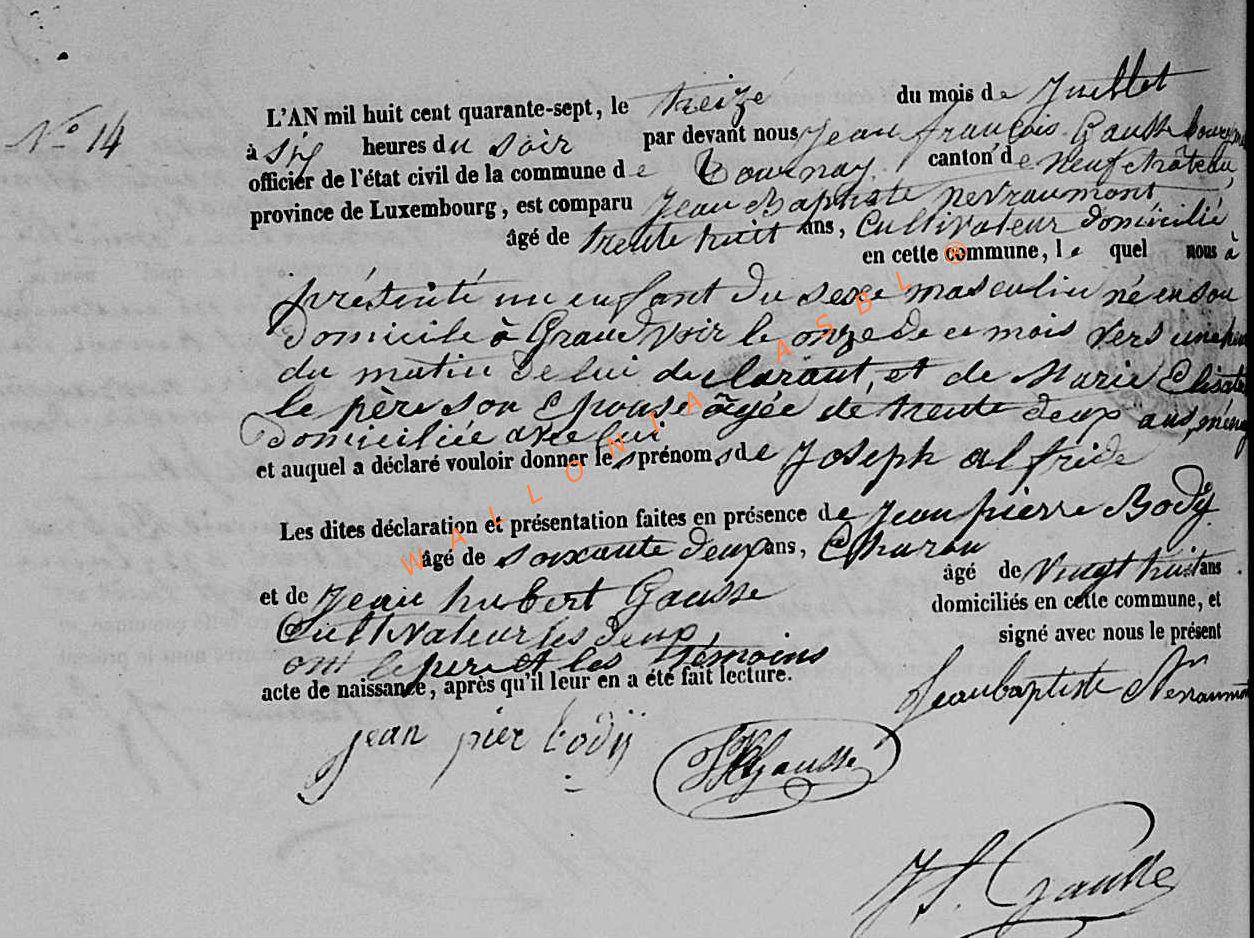 N° 14
L'AN mil huit cent quarante-sept, le treize du mois de Juillet
à six heures du soir par devant nous Jean françois Gausse bourgm
officier de l'état civil de la commune de Tournay canton de neufchâteau,
province de Luxembourg, est comparu Jean Baptiste nevraumont
âgé de trente huit ans, Cultivateur domicilié
en cette commune, le quel nous à
présenté un enfant du sexe masculin né en son
domicile à Grandvoir le onze de ce mois vers une heu
du matin de lui declarant, et de Marie Elisabe
le père son Epouse âgée de trente deux ans, ménag
Domiciliée avec lui
et auquel a déclaré vouloir donner les prénoms de Joseph alfride
Les dites déclaration et présentation faites en présence de Jean pierre Body
âgé de soixante deux ans, Charon
et de Jean hubert Gausse âgé de vingt huit ans
Cultivateur les deux, domiciliés en cette commune, et
ont le pere et les témoins signé avec nous le présent
acte de naissance, après qu'il leur en a été fait lecture.
Jeanbaptiste Nevraumont
jean pier bodij
JHGausse
J f. Gausse
WALLONIA ASBL ©